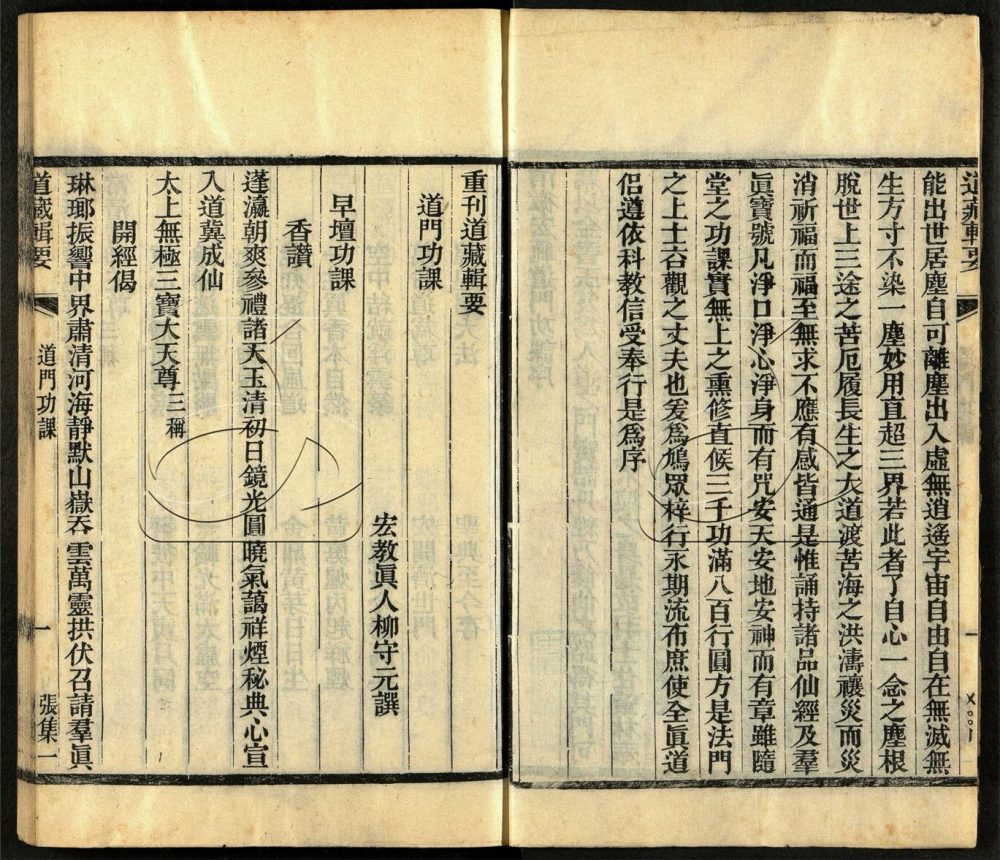 道藏輯要
一
能出世居塵自可離塵出入虛無逍遙宇宙自由自在無滅無
生方寸不染一塵妙用直超三界若此者了自心一念之塵根
脫世上三途之苦厄履長生之大道渡苦海之洪濤禳災而災
消祈福而福至無求不應有感皆通是惟誦持諸品仙經及羣
眞寶號凡淨口淨心淨身而有咒安天安地安神而有章雖隨
堂之功課實無上之熏修直候三千功滿八百行圓方是法門
之上士叴觀之丈夫也爰爲鳩眾梓行永期流布庶使全眞道
侶遵依科教信受奉行是爲序
重刊道藏輯要
道門功課
宏教眞人柳守元譔
早壇功課
香讚
蓬瀛朝爽參禮諸天玉清初日鏡光圓曉氣藹祥煙秘典心宣
入道冀成仙
太上無極三寶大天尊三稱
開經偈
琳瑯振響中界肅清河海靜默山嶽吞雲萬靈拱伏召請羣眞
道藏輯要
道門功課
一
張集一